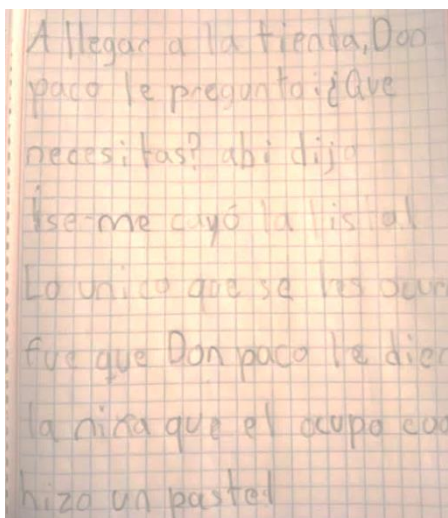 A llegar a la tienda, Don
paco le pregunto:¿Que
necesitas? abi dijo
¡se-me cayó la lista!
Lo unico que se les
fue que Don paco le
la niña que el ocupo
hizo un pastel